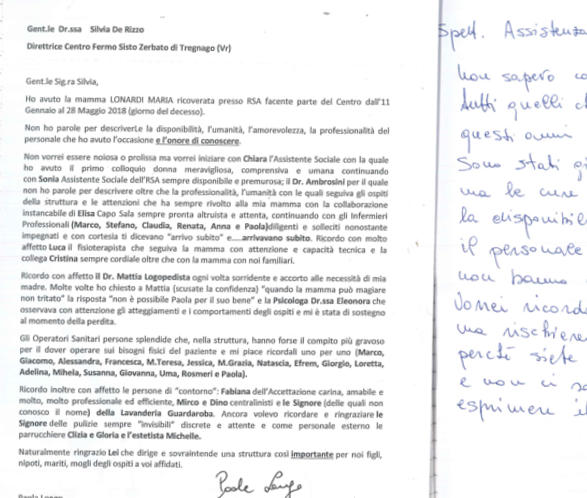 Gent.le Dr.ssa Silvia De Rizzo
Direttrice Centro Fermo Sisto Zerbato di Tregnago (Vr)
Gent.le Sig.ra Silvia,
Ho avuto la mamma LONARDI MARIA ricoverata presso RSA facente parte del Centro dall'11
Gennaio al 28 Maggio 2018 (giorno del decesso).
Non ho parole per descriverLe la disponibilità, l'umanità, l'amorevolezza, la professionalità del
personale che ho avuto l'occasione e l'onore di conoscere.
Non vorrei essere noiosa o prolissa ma vorrei iniziare con Chiara l'Assistente Sociale con la quale
ho avuto il primo colloquio donna meravigliosa, comprensiva e umana continuando
con Sonia Assistente Sociale dell'RSA sempre disponibile e premurosa; il Dr. Ambrosini per il quale
non ho parole per descrivere oltre che la professionalità, l'umanità con le quali seguiva gli ospiti
della struttura e le attenzioni che ha sempre rivolto alla mia mamma con la collaborazione
instancabile di Elisa Capo Sala sempre pronta altruista e attenta, continuando con gli Infermieri
Professionali (Marco, Stefano, Claudia, Renata, Anna e Paola)diligenti e solleciti nonostante
impegnati e con cortesia ti dicevano "arrivo subito" e....arrivavano subito. Ricordo con molto
affetto Luca il fisioterapista che seguiva la mamma con attenzione e capacità tecnica e la
collega Cristina sempre cordiale oltre che con la mamma con noi familiari.
Ricordo con affetto il Dr. Mattia Logopedista ogni volta sorridente e accorto alle necessità di mia
madre. Molte volte ho chiesto a Mattia (scusate la confidenza) "quando la mamma può magiare
non tritato" la risposta "non è possibile Paola per il suo bene" e la Psicologa Dr.ssa Eleonora che
osservava con attenzione gli atteggiamenti e i comportamenti degli ospiti e mi è stata di sostegno
al momento della perdita.
Gli Operatori Sanitari persone splendide che, nella struttura, hanno forse il compito più gravoso
per il dover operare sui bisogni fisici del paziente e mi piace ricordali uno per uno (Marco,
Giacomo, Alessandra, Francesca, M.Teresa, Jessica, M.Grazia, Natascia, Efrem, Giorgio, Loretta,
Adelina, Mihela, Susanna, Giovanna, Uma, Rosmeri e Paola).
Ricordo inoltre con affetto le persone di "contorno": Fabiana dell'Accettazione carina, amabile e
molto, molto professionale ed efficiente, Mirco e Dino centralinisti e le Signore (delle quali non
conosco il nome) della Lavanderia Guardaroba. Ancora volevo ricordare e ringraziare le
Signore delle pulizie sempre "invisibili" discrete e attente e come personale esterno le
parrucchiere Clizia e Gloria e l'estetista Michelle.
Naturalmente ringrazio Lei che dirige e sovraintende una struttura così importante per noi figli,
nipoti, mariti, mogli degli ospiti a voi affidati.
Paola Longo
Spett. Assistenza
non sapevo co
tutti quelli ch
questi anni
Sono stati gi
ma le cure
la disponibil
il personale
non hanno
Vorrei ricord
ma rischiere
perché siete
e non ci so
esprimere il